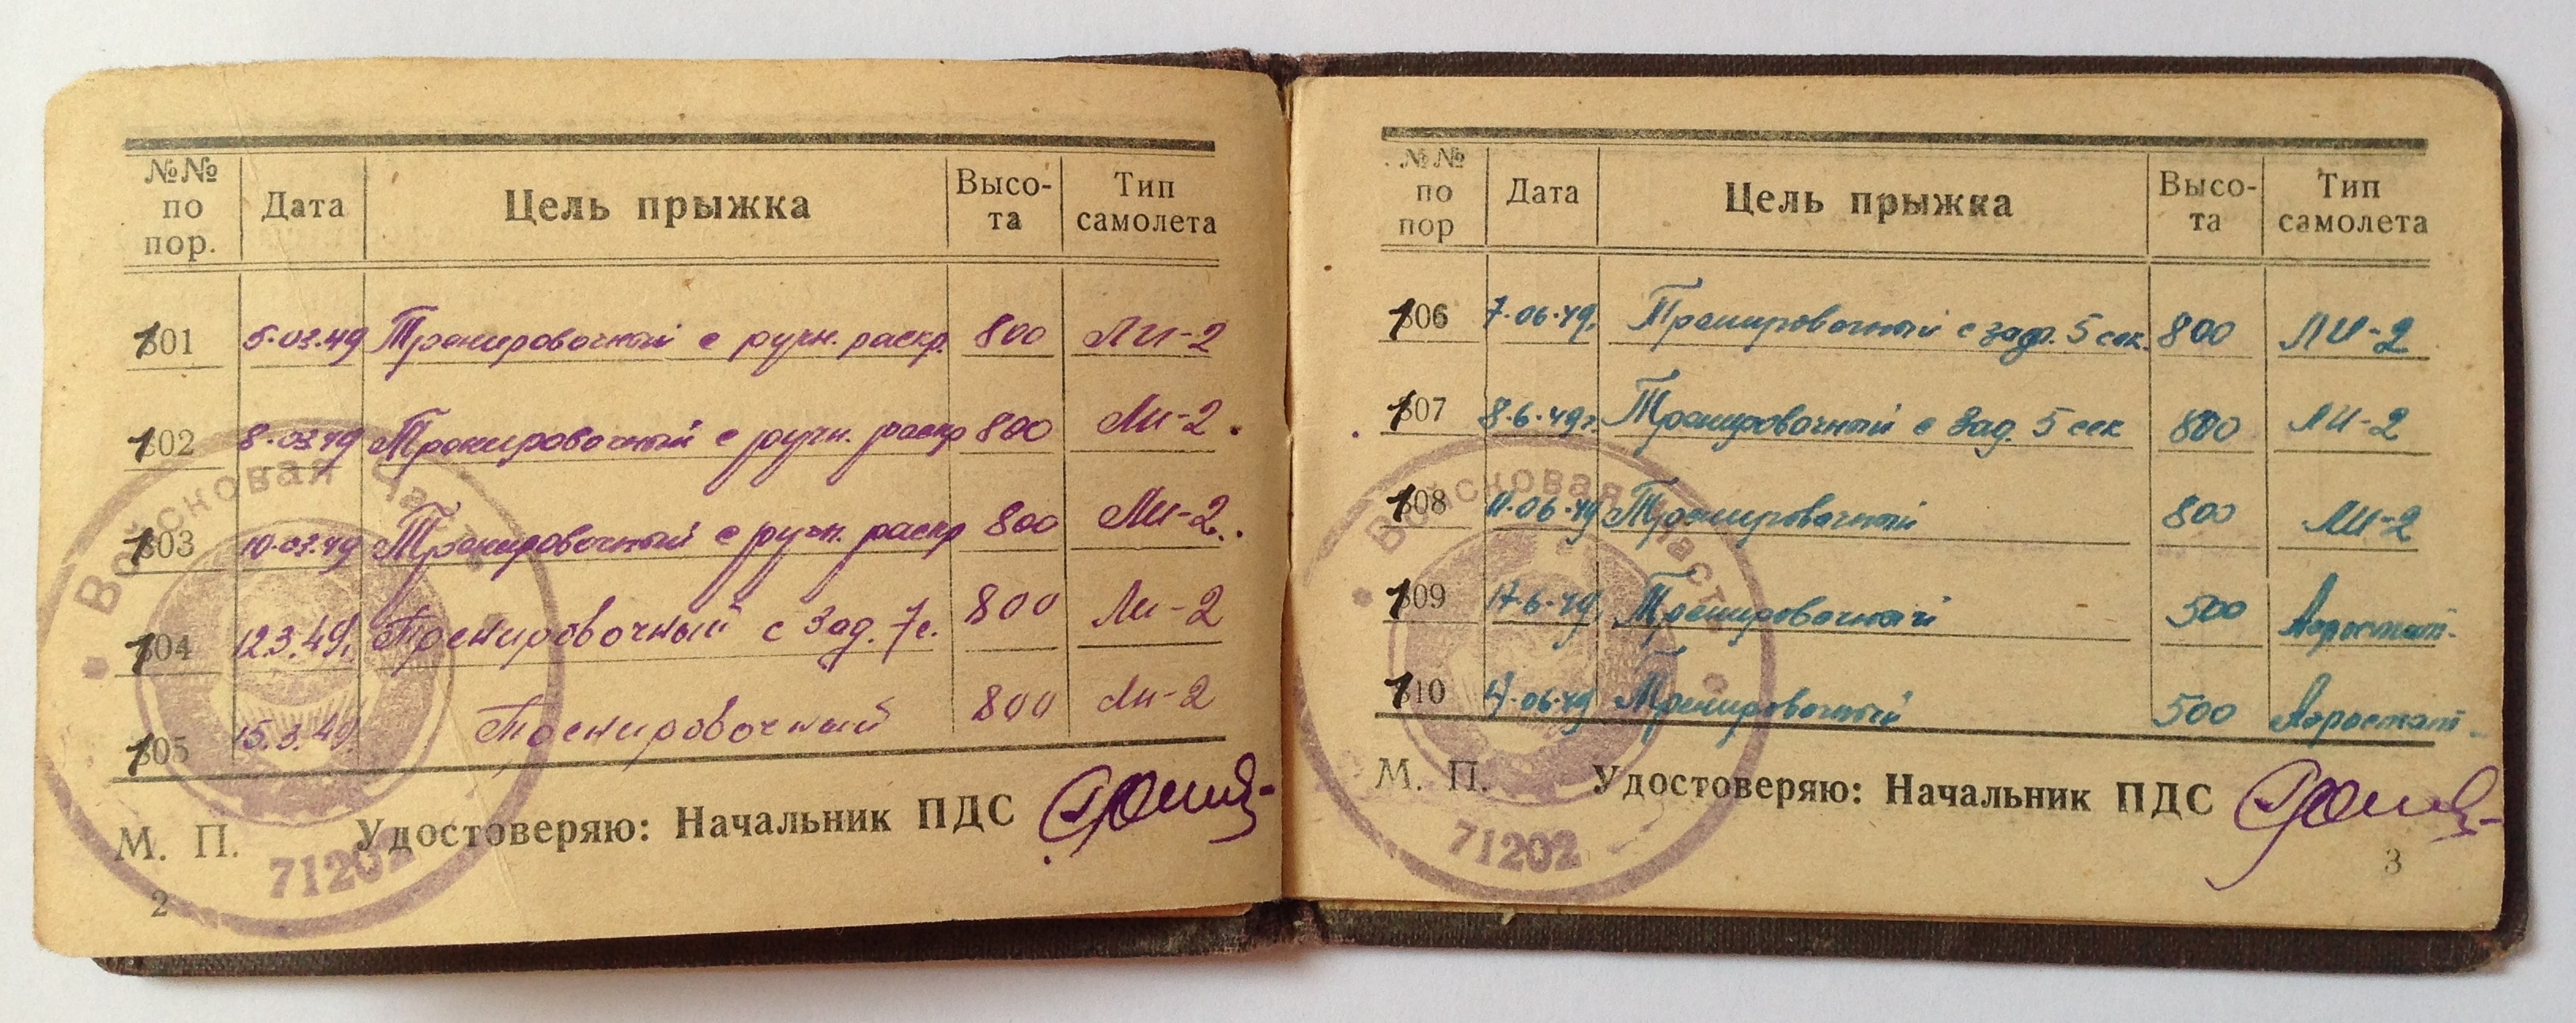 №№ по пор. Дата Цель прыжка Высо-та Тип самолета
101 5.03.49 Тренировочный с ручн. раскр. 800 Ли-2
102 8.03.49 Тренировочный с ручн. раскр 800 Ли-2.
103 10.03.49 Тренировочный с ручн. раскр 800 Ли-2.
104 12.3.49г. Тренировочный с зад. 7с. 800 Ли-2
105 15.3.49 Тренировочный 800 Ли-2
М. П. Удостоверяю: Начальник ПДС
Войсковая часть
71202
2
№№ по пор Дата Цель прыжка Высо-та Тип самолета
106 7.06.49г. Тренировочный с зад. 5 сек. 800 ЛИ-2
107 8.6.49г. Тренировочный с зад. 5 сек 800 ЛИ-2
108 11.06.49 Тренировочный 800 ЛИ-2
109 17.6.49 Тренировочный 500 Аэростат.
110 17.06.49 Тренировочный 500 Аэростат
М. П. Удостоверяю: Начальник ПДС
Войсковая часть
71202
3